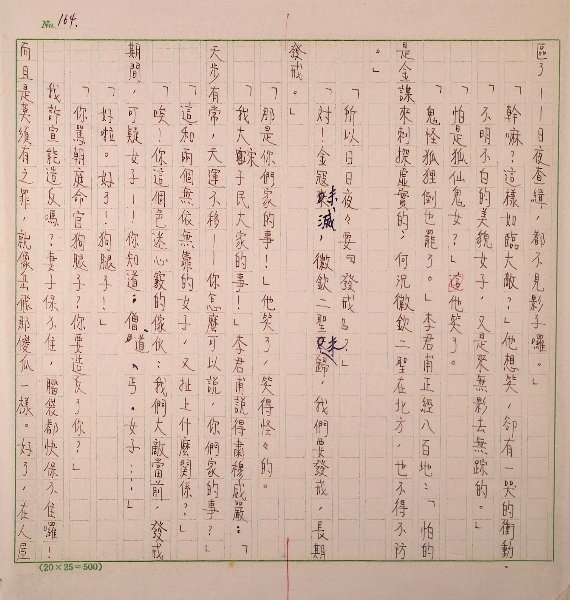 No. 164.
區了——日夜眷緝，都不見影子囉。」
「幹嘛？這樣如臨大敵？」他想笑，卻有一哭的衝動。
不明不白的美貌女子，又是來無影去無踪的。」
「怕是狐仙鬼女？」這他笑了。
「鬼怪狐狸倒也罷了。」李君甫正經八百地：「怕的
是金諜來刺探虛實的；何況徽欽二聖在北方，也不得不防
。」
「所以日日夜々要勾發戒ㄉ？」
「對！金寇未滅，徽欽二聖未歸，我們要發戒，長期
發戒。」
「那是你們家的事！」他笑了，笑得怪々的。
「我大宋子民大家的事！」李君甫說得肅穆威嚴：「
天步有常，天運不移——你怎麼可以說，你們家的事？」
「這和兩個無依無靠的女子，又扯上什麼關係？」
「唉！你這個色迷心竅的傢伙：我們大敵當前，發戒
期間，可疑女子——你知道：僧、道、丐、女子……」
「好啦。好了！狗腿子！」
「你罵朝庭命官狗腿子？你要造反了你？」
「我許宣能造反嗎？妻子保不住，腦後都快保不住囉！
而且是莫須有之罪，就像岳飛那傻瓜一樣。好了，在人屋
(20×25=500)